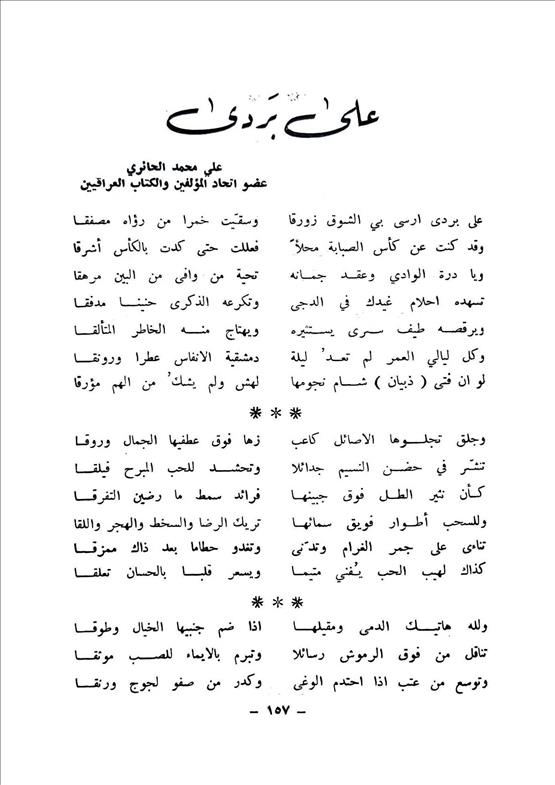 على بردى
علي محمد الحائري
عضو اتحاد المؤلفين والكتاب العراقيين
على بردى ارسى بي الشوق زورقا وسقيّت خمرا من رؤاه مصفقا
وقد كنت عن كأس الصبابة محلأً فعللت حتى كدت بالكأس أشرقا
ويا درة الوادي وعقد جمانه تحية من وافى من البين مرهقا
تسهده احلام غيدك في الدجى وتكرعه الذكرى حنينا مدفقا
ويرقصه طيف سرى يستثيره ويهتاج منه الخاطر المتألقا
وكل ليالي العمر لم تعدُ ليلة دمشقية الانفاس عطرا ورونقا
لو ان فتى ( ذبيان ) شام نجومها لهش ولم يشكُ من الهم مؤرقا
* * *
وجلق تجلوها الاصائل كاعب زها فوق عطفيها الجمال وروقا
تنشّر في حضن النسيم جدائلا وتحشد للحب المبرح فيلقا
كأن نثير الطل فوق جبينها فرائد سمط ما رضين التفرقا
وللسحب أطوار فويق سمائها تريك الرضا والسخط والهجر واللقا
تناءى على جمر الغرام وتدّنى وتغدو حطاما بعد ذاك ممزقا
كذاك لهيب الحب يُفني متيما ويسعر قلبا بالحسان تعلقا
* * *
ولله هاتيك الدمى ومقيلها اذا ضم جنبيها الخيال وطوقا
تناقل من فوق الرموش رسائلا وتبرم بالايماء للصب موثقا
وتوسع من عتب اذا احتدم الوغى وكدر من صفو لجوج ورنقا
– ١٥٧ –